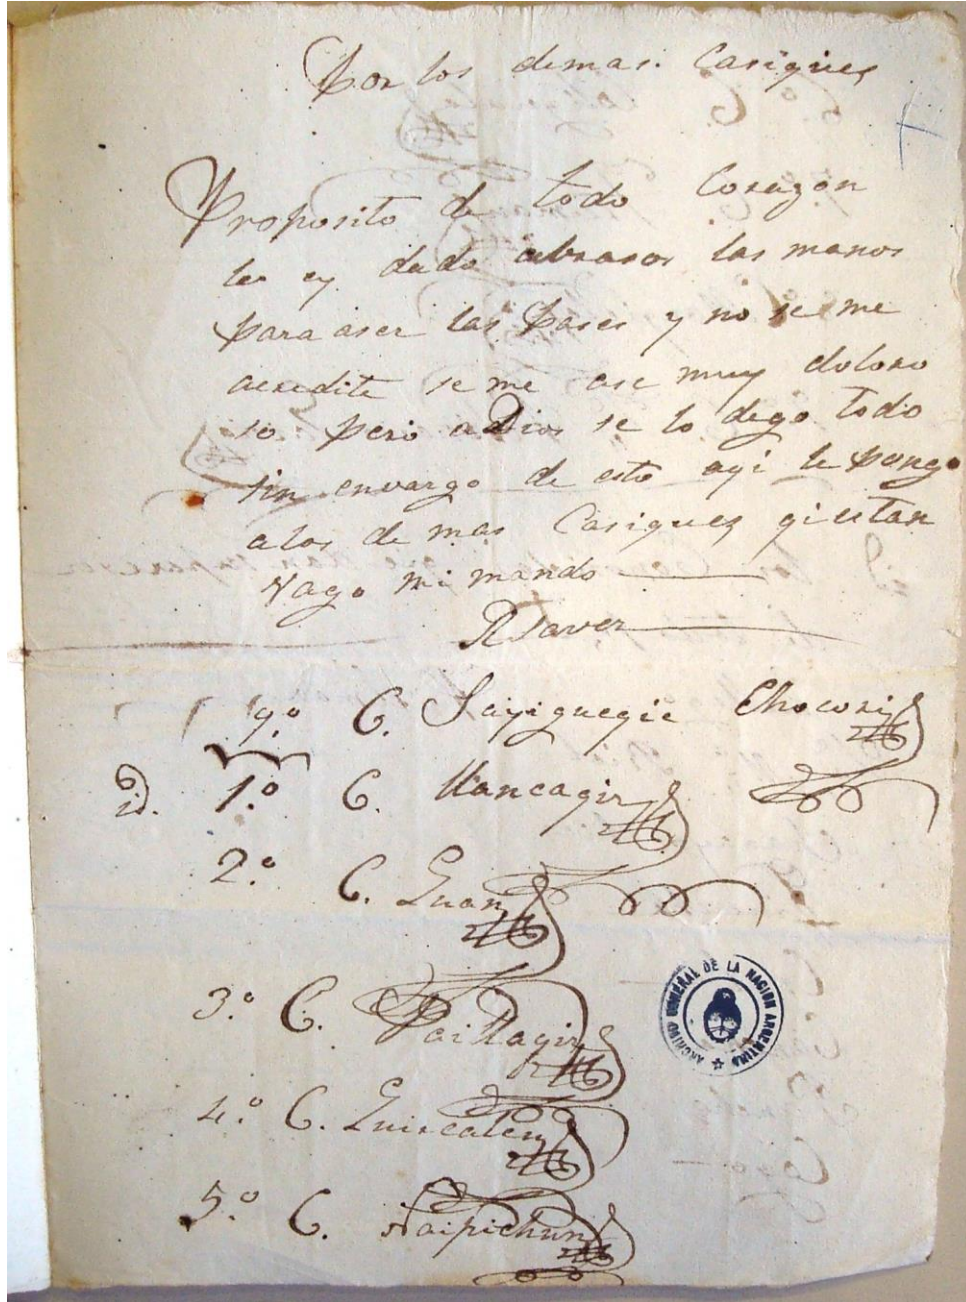 Por los demas. Casiques
Proposito de todo Corazon
les ey dado abrasos las manos
para aser las Pases y no se me
acredite se me ase muy doloro
so pero a Dios se lo dego todo
sin envargo de esto ayi le pongo
alos de mas Casiquez qi estan
Vago mi mando
A Saver
9.º C. Sayiguegie Chocori
id. 1.º C. Mancagir
2.º C. Guan
3.º C. Paillagir
4.º C. Guircalen
5.º C. Naipichun
ARCHIVO GENERAL DE LA NACION ARGENTINA